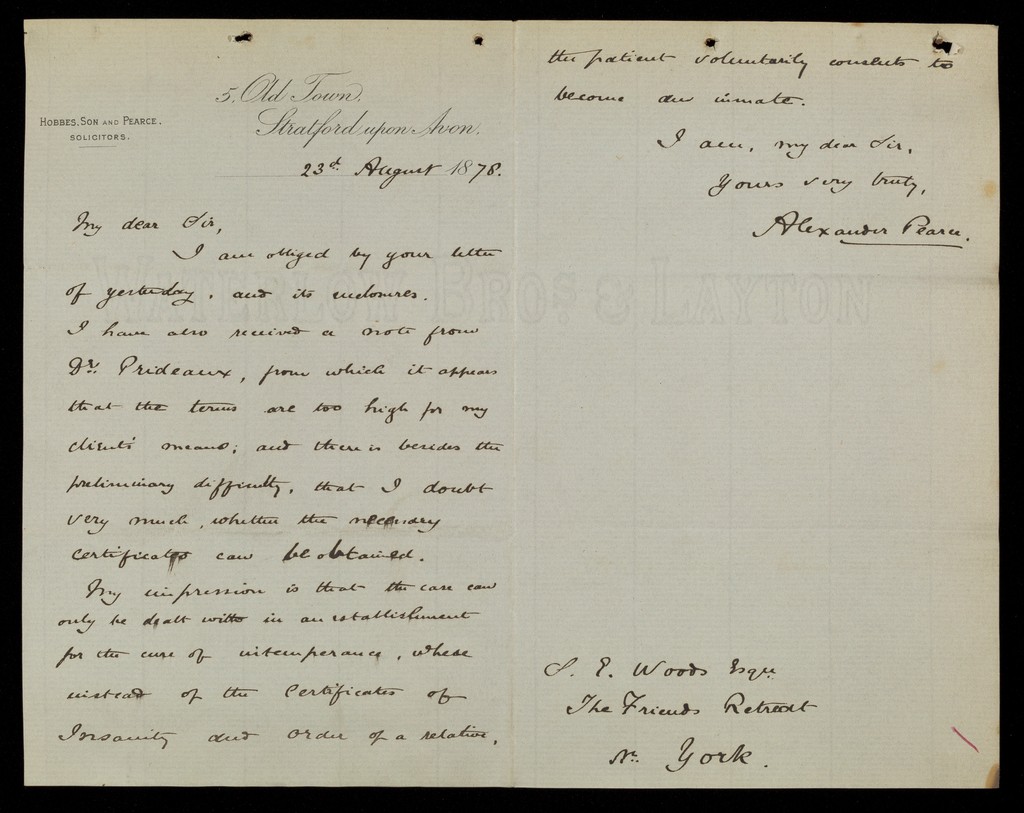 HOBBES, SON AND PEARCE.
SOLICITORS.
5, Old Town,
Stratford upon Avon,
23d. August 1878.
My dear Sir,
I am obliged by your letter
of yesterday, and its enclosures.
I have also received a note from
Dr. Prideaux, from which it appears
that the terms are too high for my
client's means; and there is besides the
preliminary difficulty, that I doubt
very much, whether the necessary
certificates can be obtained.
My impression is that the case can
only be dealt with in an establishment
for the cure of intemperance, where
instead of the Certificates of
Insanity and order of a relative,
the patient voluntarily consents to
become an inmate.
I am, my dear Sir,
Yours very truly,
Alexander Pearce.
S. E. Woods Esqre
The Friends Retreat
Nr. York.
WATERLOW BROS. & LAYTON